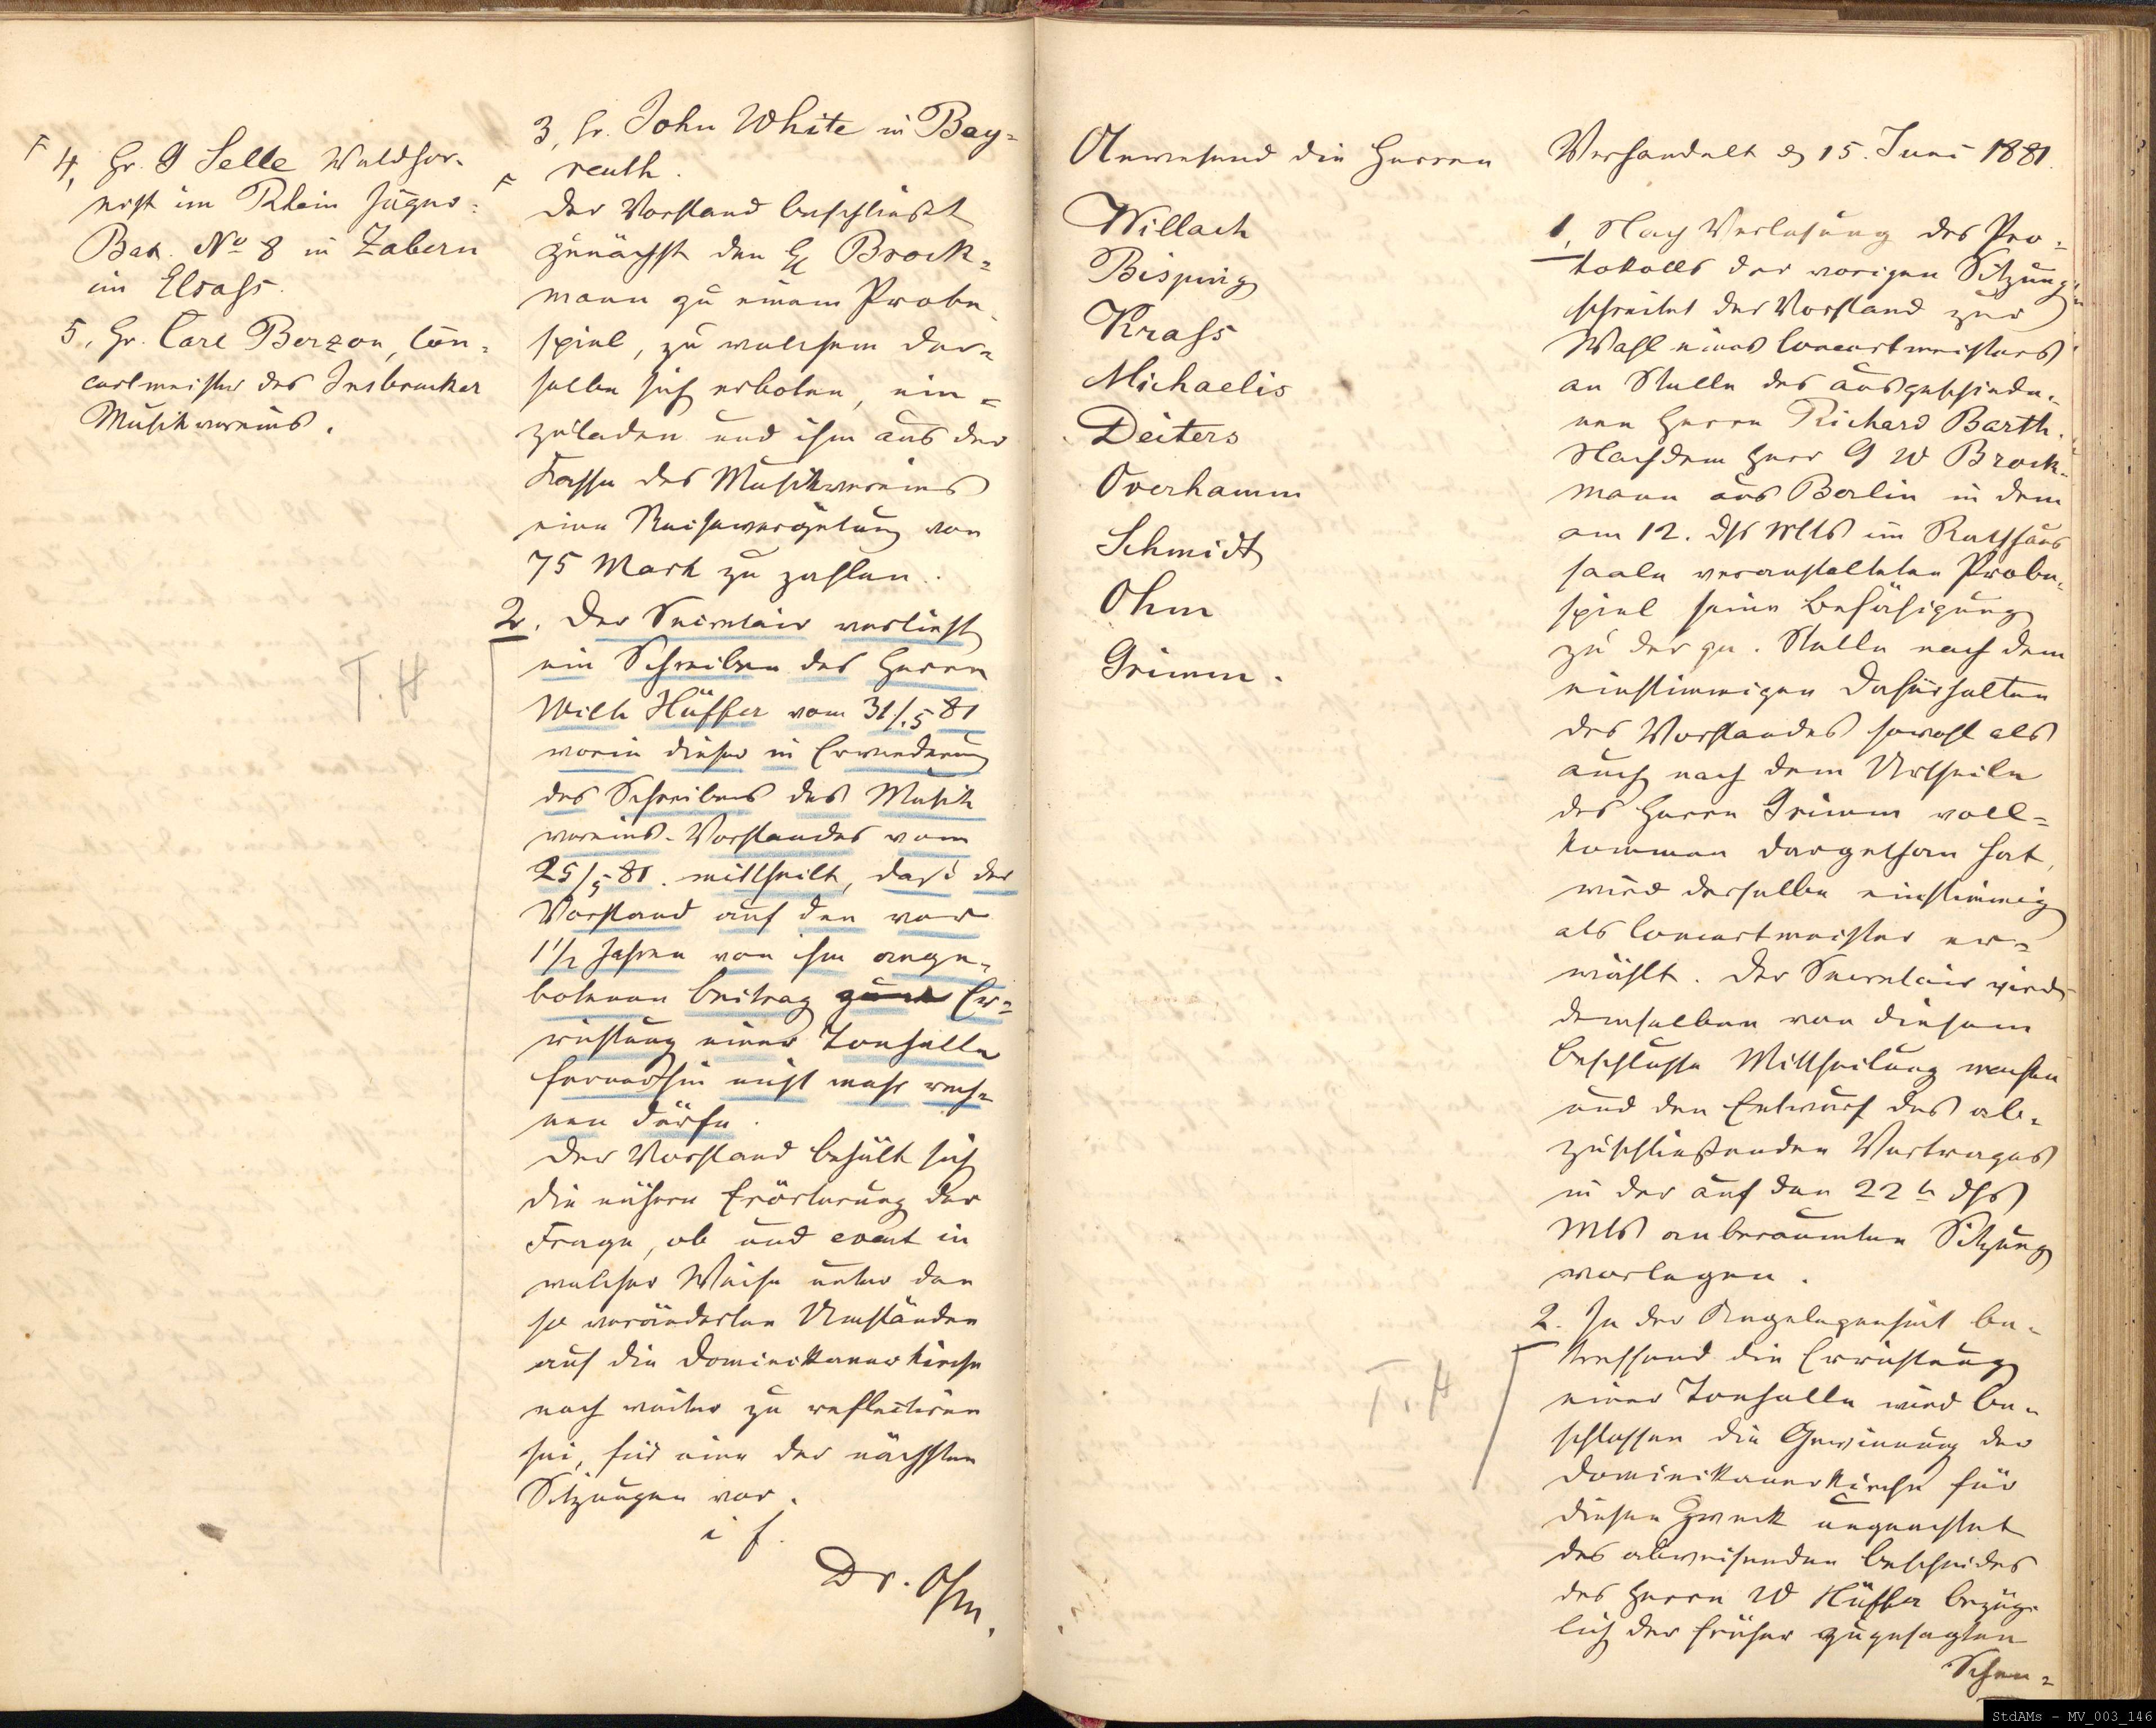 F 4, Hr. G Selle Waldhor-
nist im Rhein Jäger-
Bat. No 8 in Zabern
im Elsaß.
5, Hr. Carl Berzon, Con-
certmeister des Insbrucker
Musikvereins.
T. H
3, Hr. John White in Bay-
reuth.
F Der Vorstand beschließt
zunächst den H Brock-
mann zu einem Probe-
spiel, zu welchem der-
selbe sich erboten, ein-
zuladen und ihm aus der
Kasse des Musikvereins
eine Reisevergütung von
75 Mark zu zahlen.
2. Der Secretair verliest
ein Schreiben des Herrn
Wilh Hüffer vom 31/5 81
worin dieser in Erwiederung
des Schreibens des Musik
vereins-Vorstandes vom
25/5 81. mittheilt, daß der
Vorstand auf den vor
1 1/2 Jahren von ihm ange-
botenen Beitrag zur Er-
richtung einer Tonhalle
fernerhin nicht mehr rech-
nen dürfe.
Der Vorstand behält sich
die nähere Erörterung der
Frage, ob und event in
welcher Weise unter den
so veränderten Umständen
auf die Dominikanerkirche
noch weiter zu reflectiren
sei, für eine der nächsten
Sitzungen vor.
i f.
Dr. Ohm.
Anwesend die Herren
Willach
Bisping
Krass
Michaelis
Deiters
Overhamm
Schmidt
Ohm
Grimm.
T. H
Verhandelt d 15. Juni 1881.
1, Nach Verlesung des Pro-
tokolls der vorigen Sitzung
schreitet der Vorstand zur
Wahl eines Concertmeisters
an Stelle des ausgeschiede-
nen Herrn Richard Barth.
Nachdem Herr G W Brock-
mann aus Berlin in dem
am 12. dss Mts im Rathhaus
saale veranstalteten Probe-
spiel seine Befähigung
zu der qu. Stelle nach dem
einstimmigen Dafürhalten
des Vorstandes sowohl als
auch nach dem Urtheile
des Herrn Grimm voll-
kommen dargethan hat,
wird derselbe einstimmig
als Concertmeister er-
wählt. Der Secretair wird
demselben von diesem
Beschlusse Mittheilung machen
und den Entwurf des ab-
zuschließenden Vertrages
in der auf den 22 t dss
Mts anberaumten Sitzung
vorlegen.
2. In der Angelegenheit be-
treffend die Errichtung
einer Tonhalle wird be-
schlossen die Gewinnung der
Dominikanerkirche für
diesen Zweck ungeachtet
des abweisenden Bescheides
des Herrn W Hüffer bezüg-
lich der früher zugesagten
Schen-
StdAMs - MV_003_146